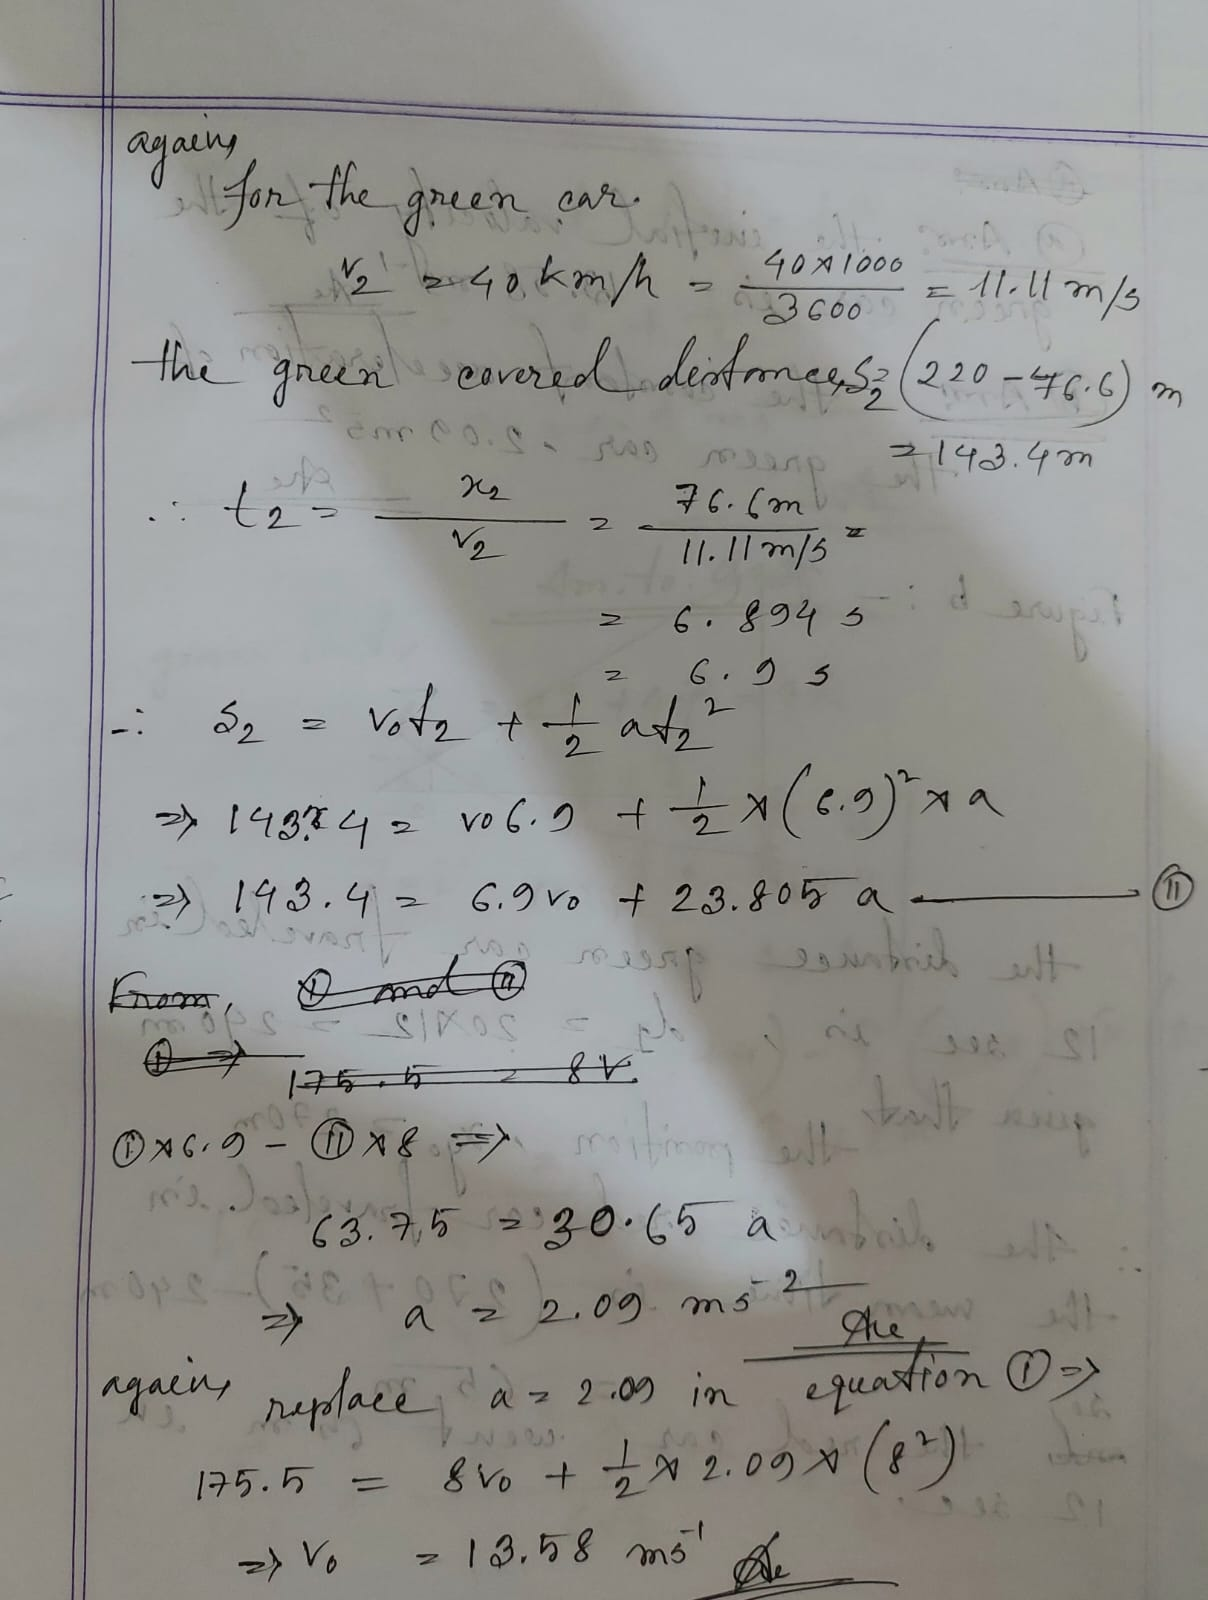 again,
for the green car.
v₂ = 40 km/h = 40×1000/3600 = 11.11 m/s
the green covered distance, S₂ = (220 - 76.6) m
= 143.4 m
∴ t₂ = x₂/v₂ = 76.6m/11.11 m/s =
= 6.894 s
= 6.9 s
∴ S₂ = v₀t₂ + 1/2 at₂²
⇒ 143.4 = v₀6.9 + 1/2 × (6.9)² × a
⇒ 143.4 = 6.9 v₀ + 23.805 a ——— (II)
From, (I) and (II)
(I) ⇒
175.5 = 8v
(I) × 6.9 - (II) × 8 ⇒
63.75 = 30.65 a
⇒ a = 2.09 ms⁻²
again, replace a = 2.09 in equation (I) ⇒
175.5 = 8v₀ + 1/2 × 2.09 × (8²)
⇒ v₀ = 13.58 ms⁻¹